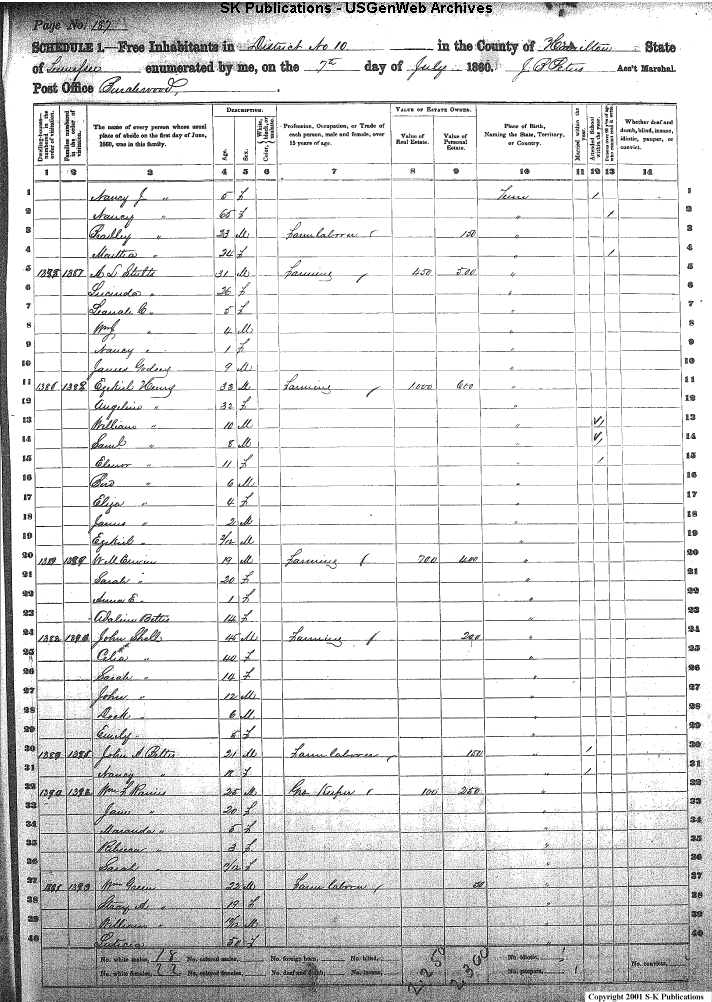 SK Publications - USGenWeb Archives
Page No. 187
SCHEDULE 1.—Free Inhabitants in District No 10 in the County of Hamilton State
of Tennessee enumerated by me, on the 7th day of July 1860. Ass't Marshal.
Post Office
DESCRIPTION. VALUE OF ESTATE OWNED.
Dwelling-houses— numbered in the order of visitation. Families numbered in the order of visitation. The name of every person whose usual place of abode on the first day of June, 1860, was in this family. Age. Sex. Color, White, black, or mulatto. Profession, Occupation, or Trade of each person, male and female, over 15 years of age. Value of Real Estate. Value of Personal Estate. Place of Birth, Naming the State, Territory, or Country. Married within the year. Attended School within the year. Persons over 20 years of age who cannot read & write. Whether deaf and dumb, blind, insane, idiotic, pauper, or convict.
1 2 3 4 5 6 7 8 9 10 11 12 13 14
1 Nancy J. " 5 f Tenn / 1
2 Nancy " 65 f " / 2
3 " 23 M Farm laborer 150 " 3
4 Martha " 24 f " / 4
5 1387 31 M Farming 450 500 " 5
6 Lucinda " 26 f " 6
7 C. " 5 f " 7
8 Wm J. " 4 M " 8
9 Nancy " 1 f " 9
10 James Godsey 9 M " 10
11 1386 1388 Ezekiel Henry 33 M Farming 1000 600 " 11
12 Angeline " 32 f " 12
13 William " 10 M " / 13
14 Saml " 8 M " / 14
15 Elenor " 11 f " / 15
16 Bird " 6 M " 16
17 Eliza " 4 f " 17
18 James " 2 M " 18
19 Ezekiel " /12 M " 19
20 1389 W M Erwin 19 M Farming 700 400 " 20
21 Sarah " 20 f " 21
22 Anna E. " 1 f " 22
23 Adaline Bettis 14 f " 23
24 John Shell 45 M Farming 200 " 24
25 Celia " 40 f " 25
26 Sarah " 14 f " 26
27 John " 12 M " 27
28 Dock " 6 M " 28
29 Emily " 5 f " 29
30 John A. Bettis 21 M Farm laborer 150 " / 30
31 Nancy " 18 f / 31
32 1390 1392 Wm F. Raines 25 M Gro Keeper 100 250 " 32
33 Jane " 20 f " 33
34 Maranda " 5 f " 34
35 Rebecca " 3 f " 35
36 Sarah " /12 f " 36
37 1393 Wm Green 22 M Farm laborer 50 " 37
38 A. " 19 f " 38
39 William " /12 M " 39
40 50 f " 40
No. white males, 18 No. colored males, No. foreign born, No. blind, 2250 2300 No. idiotic, No. convicts,
No. white females, 22 No. colored females, No. deaf and dumb, No. insane, No. paupers,
Copyright 2001 S-K Publications